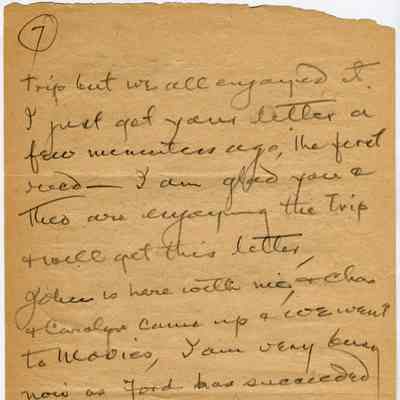 7
trip but we all enjoyed it.
I just got your letter a
few minutes ago, the first
recd — I am glad you &
Theo are enjoying the trip
& will get this letter,
John is here with me, & Chas
& Carolyn came up & we went
to Movies, I am very busy
now as Ford has succeeded